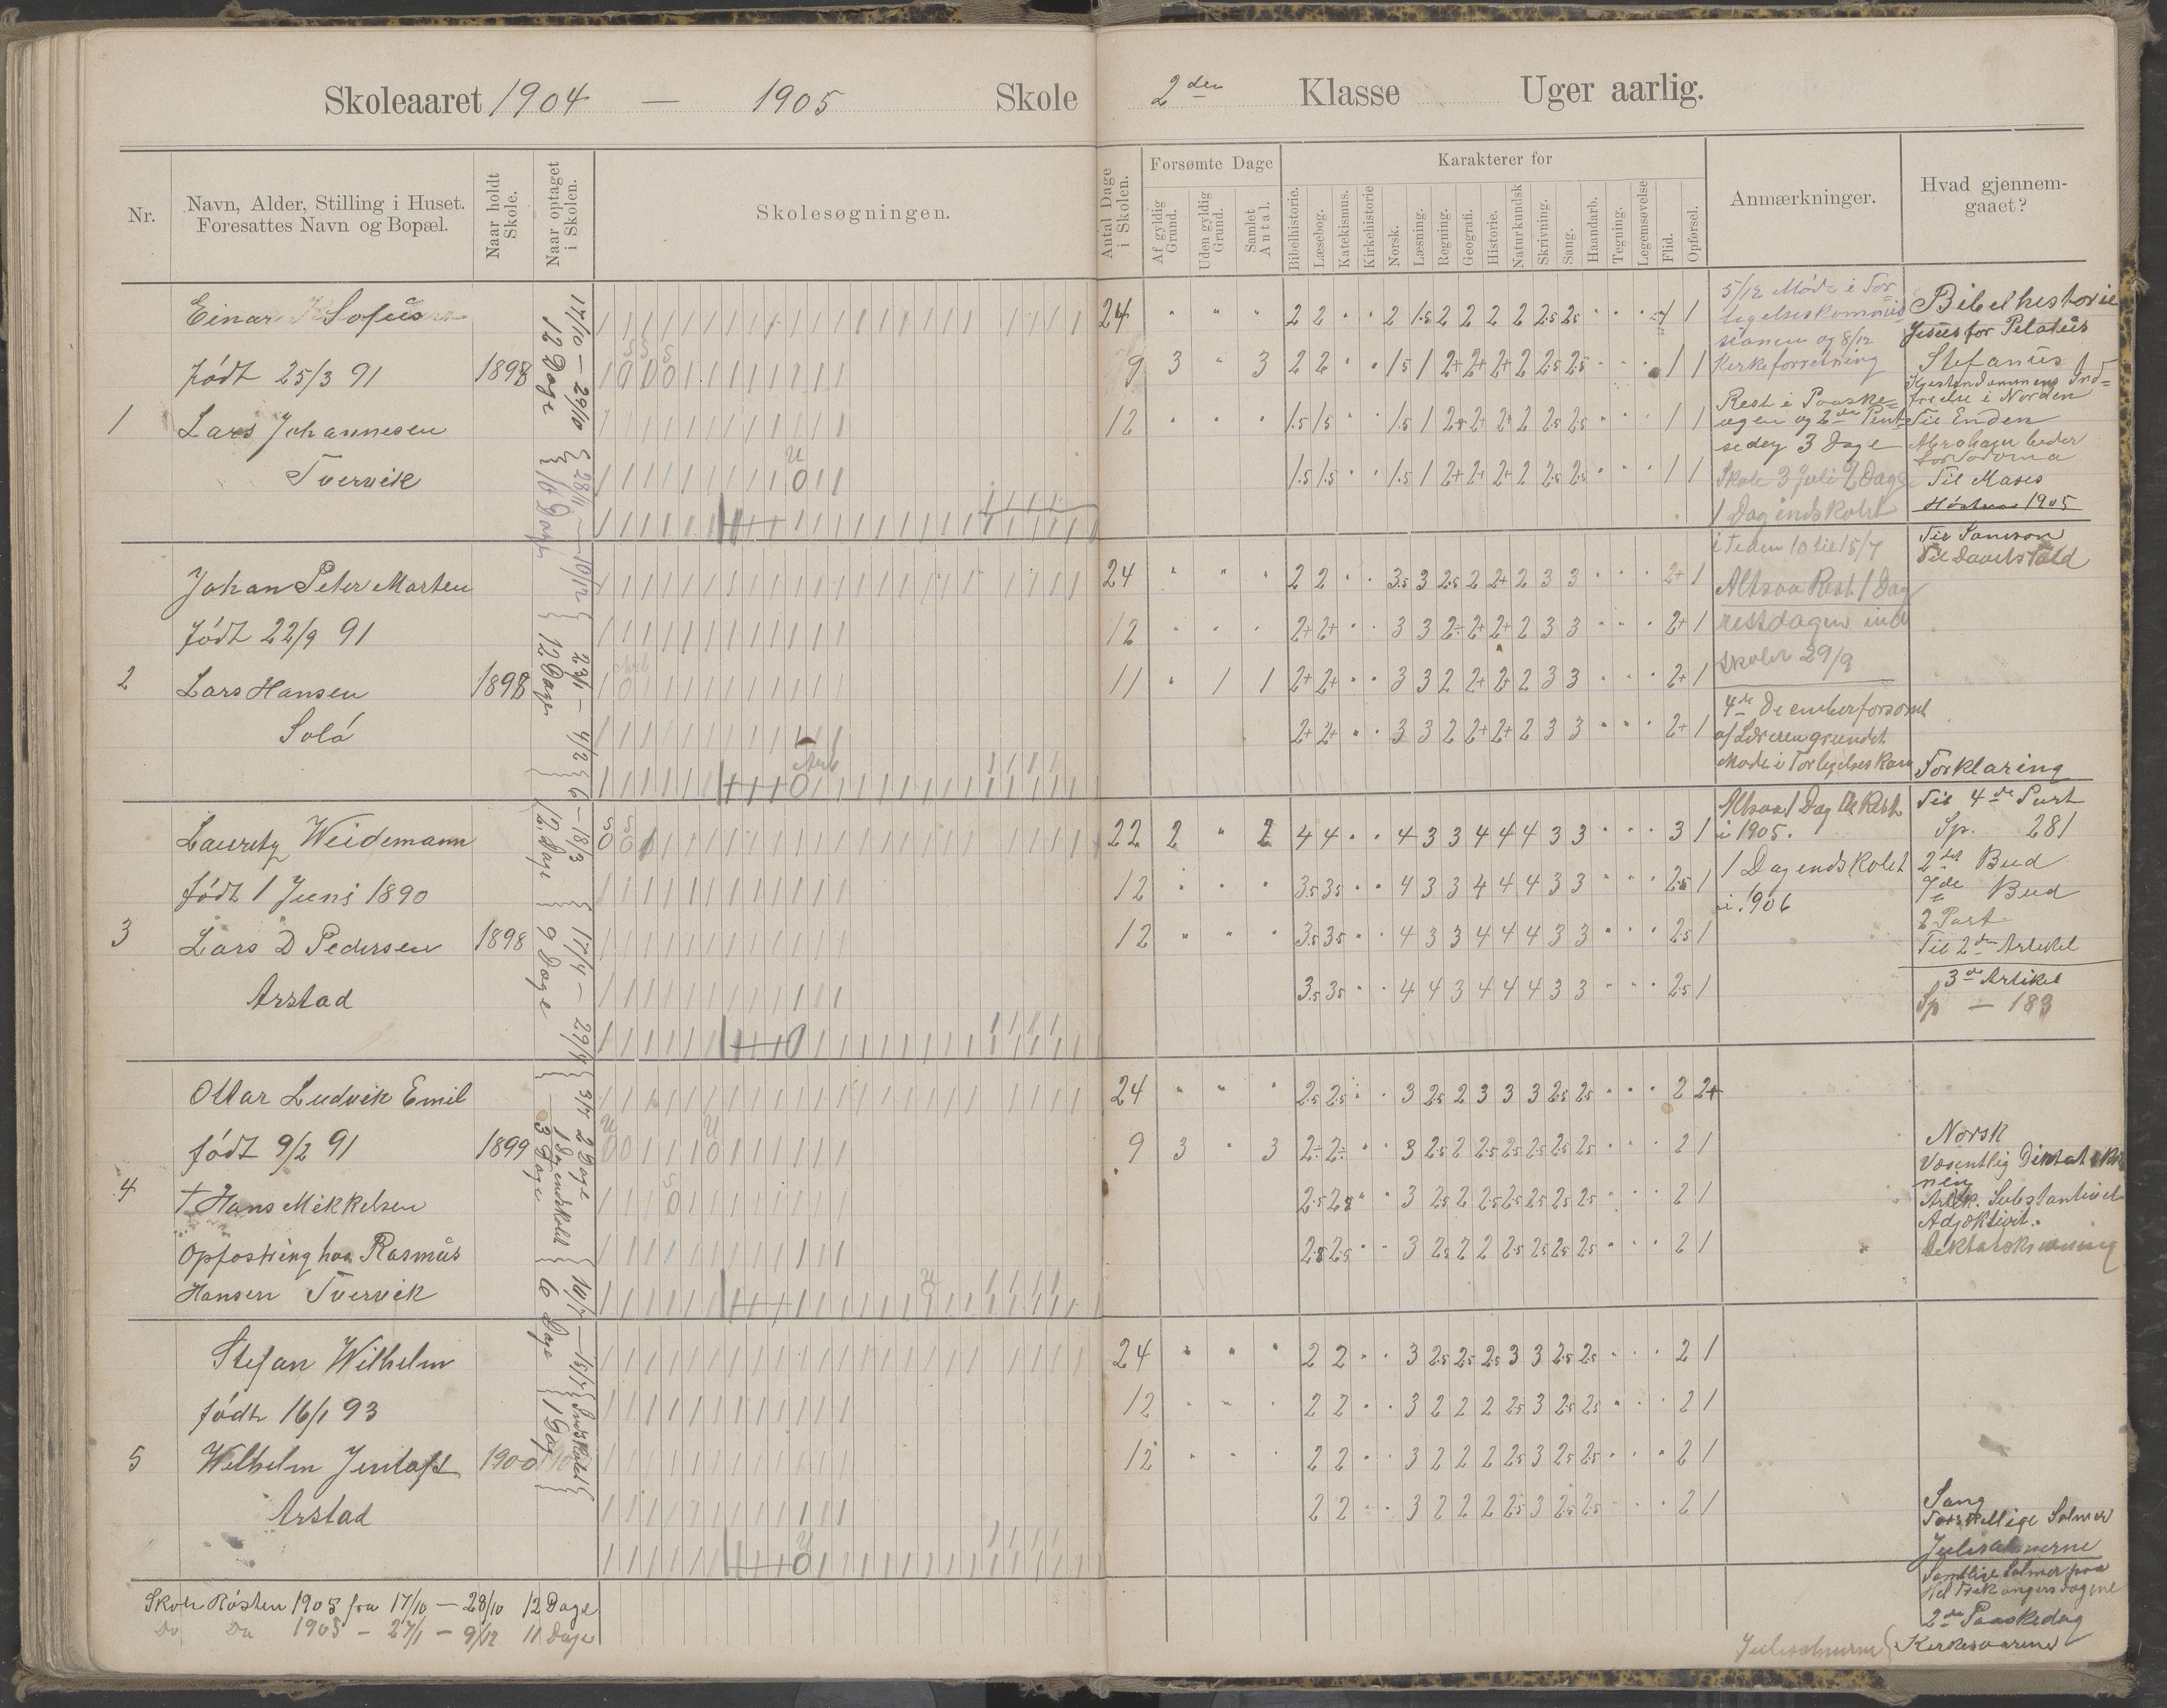 Skoleaaret 1904 — 1905 Skole 2den Klasse Uger aarlig.
Nr.
Navn, Alder, Stilling i Huset.
Foresattes Navn og Bopæl.
Naar holdt
Skole.
Naar optaget
i Skolen.
Skolesøgningen.
Antal Dage
i Skolen.
Forsømte Dage
Af gyldig
Grund.
Uden gyldig
Grund.
Samlet
Antal.
Karakterer for
Bibelhistorie.
Læsebog.
Katekismus.
Kirkehistorie
Norsk.
Læsning.
Regning.
Geografi.
Historie.
Naturkundsk
Skrivning.
Sang.
Haandarb.
Tegning.
Legemsøvelse
Flid.
Opførsel.
Anmærkninger.
Hvad gjennem-
gaaet?
1
Einar Sofus
født 25/3 91
Lars Johannesen
Tvervik
1898
24 " " " 2 2 " " 2 1.5 2 2 2 2 2.5 2.5 " " " 1 1
9 3 " 3 2 2 " " 1.5 1 2+ 2+ 2+ 2 2.5 2.5 " " " 1 1
12 " " " 1.5 1.5 " " 1.5 1 2+ 2+ 2+ 2 2.5 2.5 " " " 1 1
1.5 1.5 " " 1.5 1 2+ 2+ 2+ 2 2.5 2.5 " " " 1 1
2
Johan Peter Morten
født 22/9 91
Lars Hansen
Solå
1898
24 " " " 2 2 " " 3.5 3 2.5 2 2+ 2 3 3 " " " 2+ 1
12 " " " 2+ 2+ " " 3 3 2÷ 2+ 2+ 2 3 3 " " " 2+ 1
11 " 1 1 2+ 2+ " " 3 3 2 2+ 2+ 2 3 3 " " " 2+ 1
2+ 2+ " " 3 3 2 2+ 2+ 2 3 3 " " " 2+ 1
3
Lauritz Weidemann
født 1 Juni 1890
Lars D Pedersen
Arstad
1898
22 2 " 2 4 4 " " 4 3 3 4 4 4 3 3 " " " 3 1
12 " " " 3.5 3.5 " " 4 3 3 4 4 4 3 3 " " " 2.5 1
12 " " " 3.5 3.5 " " 4 3 3 4 4 4 3 3 " " " 2.5 1
3.5 3.5 " " 4 4 3 4 4 4 3 3 " " " 2.5 1
4
Ottar Ludvik Emil
født 9/2 91
† Hans Mikkelsen
Opfostring hos Rasmus
Hansen Tvervik
1899
24 " " " 2.5 2.5 " " 3 2.5 2 3 3 3 2.5 2.5 " " " 2 2+
9 3 " 3 2÷ 2÷ " " 3 2.5 2 2.5 2.5 2.5 2.5 2.5 " " " 2 1
2.5 2.5 " " 3 2.5 2 2.5 2.5 2.5 2.5 2.5 " " " 2 1
2.5 2.5 " " 3 2.5 2 2 2.5 2.5 2.5 2.5 " " " 2 1
5
Stefan Wilhelm
født 16/1 93
Wilhelm Jentoft
Arstad
1900
24 " " " 2 2 " " 3 2.5 2.5 2.5 3 3 2.5 2.5 " " " 2 1
12 " " " 2 2 " " 3 2 2 2 2.5 3 2.5 2.5 " " " 2 1
12 " " " 2 2 " " 3 2 2 2 2.5 3 2.5 2.5 " " " 2 1
2 2 " " 3 2 2 2 2.5 3 2.5 2.5 " " " 2 1
17/10 — 29/10 { 28/11 — 10/12 } 23/1 — 4/2 { 6 — 18/3 } { 17/4 — 29/4 } 3/7 2 Dage { 10/7 — 15/7 {
12 Dage { 10 Dage { 12 Dage } 12 Dage } 9 Dage } 3 Dage 1 Dag endskoldt { 6 Dage { 1 Dag }
5/12 Møde i For-
ligelseskommis-
sionen og 8/12
Kirkeforretning
Rest i Paaske-
ugen og 2den Pint-
sedag 3 Dage
Skole 3 Juli 2 Dage
1 Dag indskolet
i Tiden 10 til 15/7
Altsaa Rest 1 Dag
restdagen ind
skolet 29/9
4de December forsømt
af Læreren grundet
Møde i Forligelseskom
Altsaa 1 Dag Rest
i 1905.
1 Dag endskolet
i 1906
Bibelhistorie
Jesus for Pilatus
Stefanus
Kristendommens Ind-
førelse i Norden
Til Enden
Abraham beder
for Sodoma
Til Moses
Høsten 1905
Til Samson
Til Davids Fald
Forklaring
Til 4de Part
Sp. 281
2det Bud
7de Bud
2 Part
Til 2den Artikel
3de Artikel
Sp — 183
Norsk
Væsentlig Diktatskriv
nen
Artik. Substantivet
Adjektivet.
Diktatskrivning
Sang
Forskellige Salmer
Julesalmerne
Samtlige Salmer paa
2den Paaskedag
Julesalmerne { Kirkesvarene
Skole Høsten 1905 fra 17/10 — 28/10 12 Dage
Do Do 1905 — 27/1 — 9/12 11 Dage